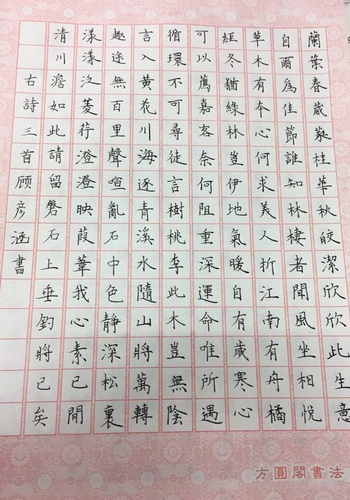 蘭葉春葳蕤桂華秋皎潔欣欣此生意
自爾為佳節誰知林棲者聞風坐相悅
草木有本心何求美人折江南有舟橘
經冬猶綠林豈伊地氣暖自有歲寒心
可以薦嘉客奈何阻重深運命唯所遇
循環不可尋徒言樹桃李此木豈無陰
言入黃花川海逐青溪水隨山將萬轉
趣途無百里聲喧亂石中色靜深松裏
漾漾泛菱荇澄澄映葭葦我心素已閒
清川澹如此請留磐石上垂釣將已矣
右詩三首顧彥涵書
方圓閣書法